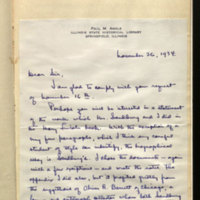 PAUL M. ANGLE
ILLINOIS STATE HISTORICAL LIBRARY
SPRINGFIELD, ILLINOIS
November 26, 1938
Dear Sir,
I am glad to comply with your request
of November 16th.
Perhaps you will be interested in a statement
of the work which Mr. Sandburg and I did in
the Mary Lincoln book. With the exception of a
very few paragraphs, which I think any competent
student of style can identify, the biographical
essay is Sandburg's. I chose the documents - again
with a few exceptions - and wrote the notes. The
appendix I did also, but it profited greatly from
the suggestions of Oliver R. Barrett of Chicago, a
lawyer and autograph collector whom both Sandburg